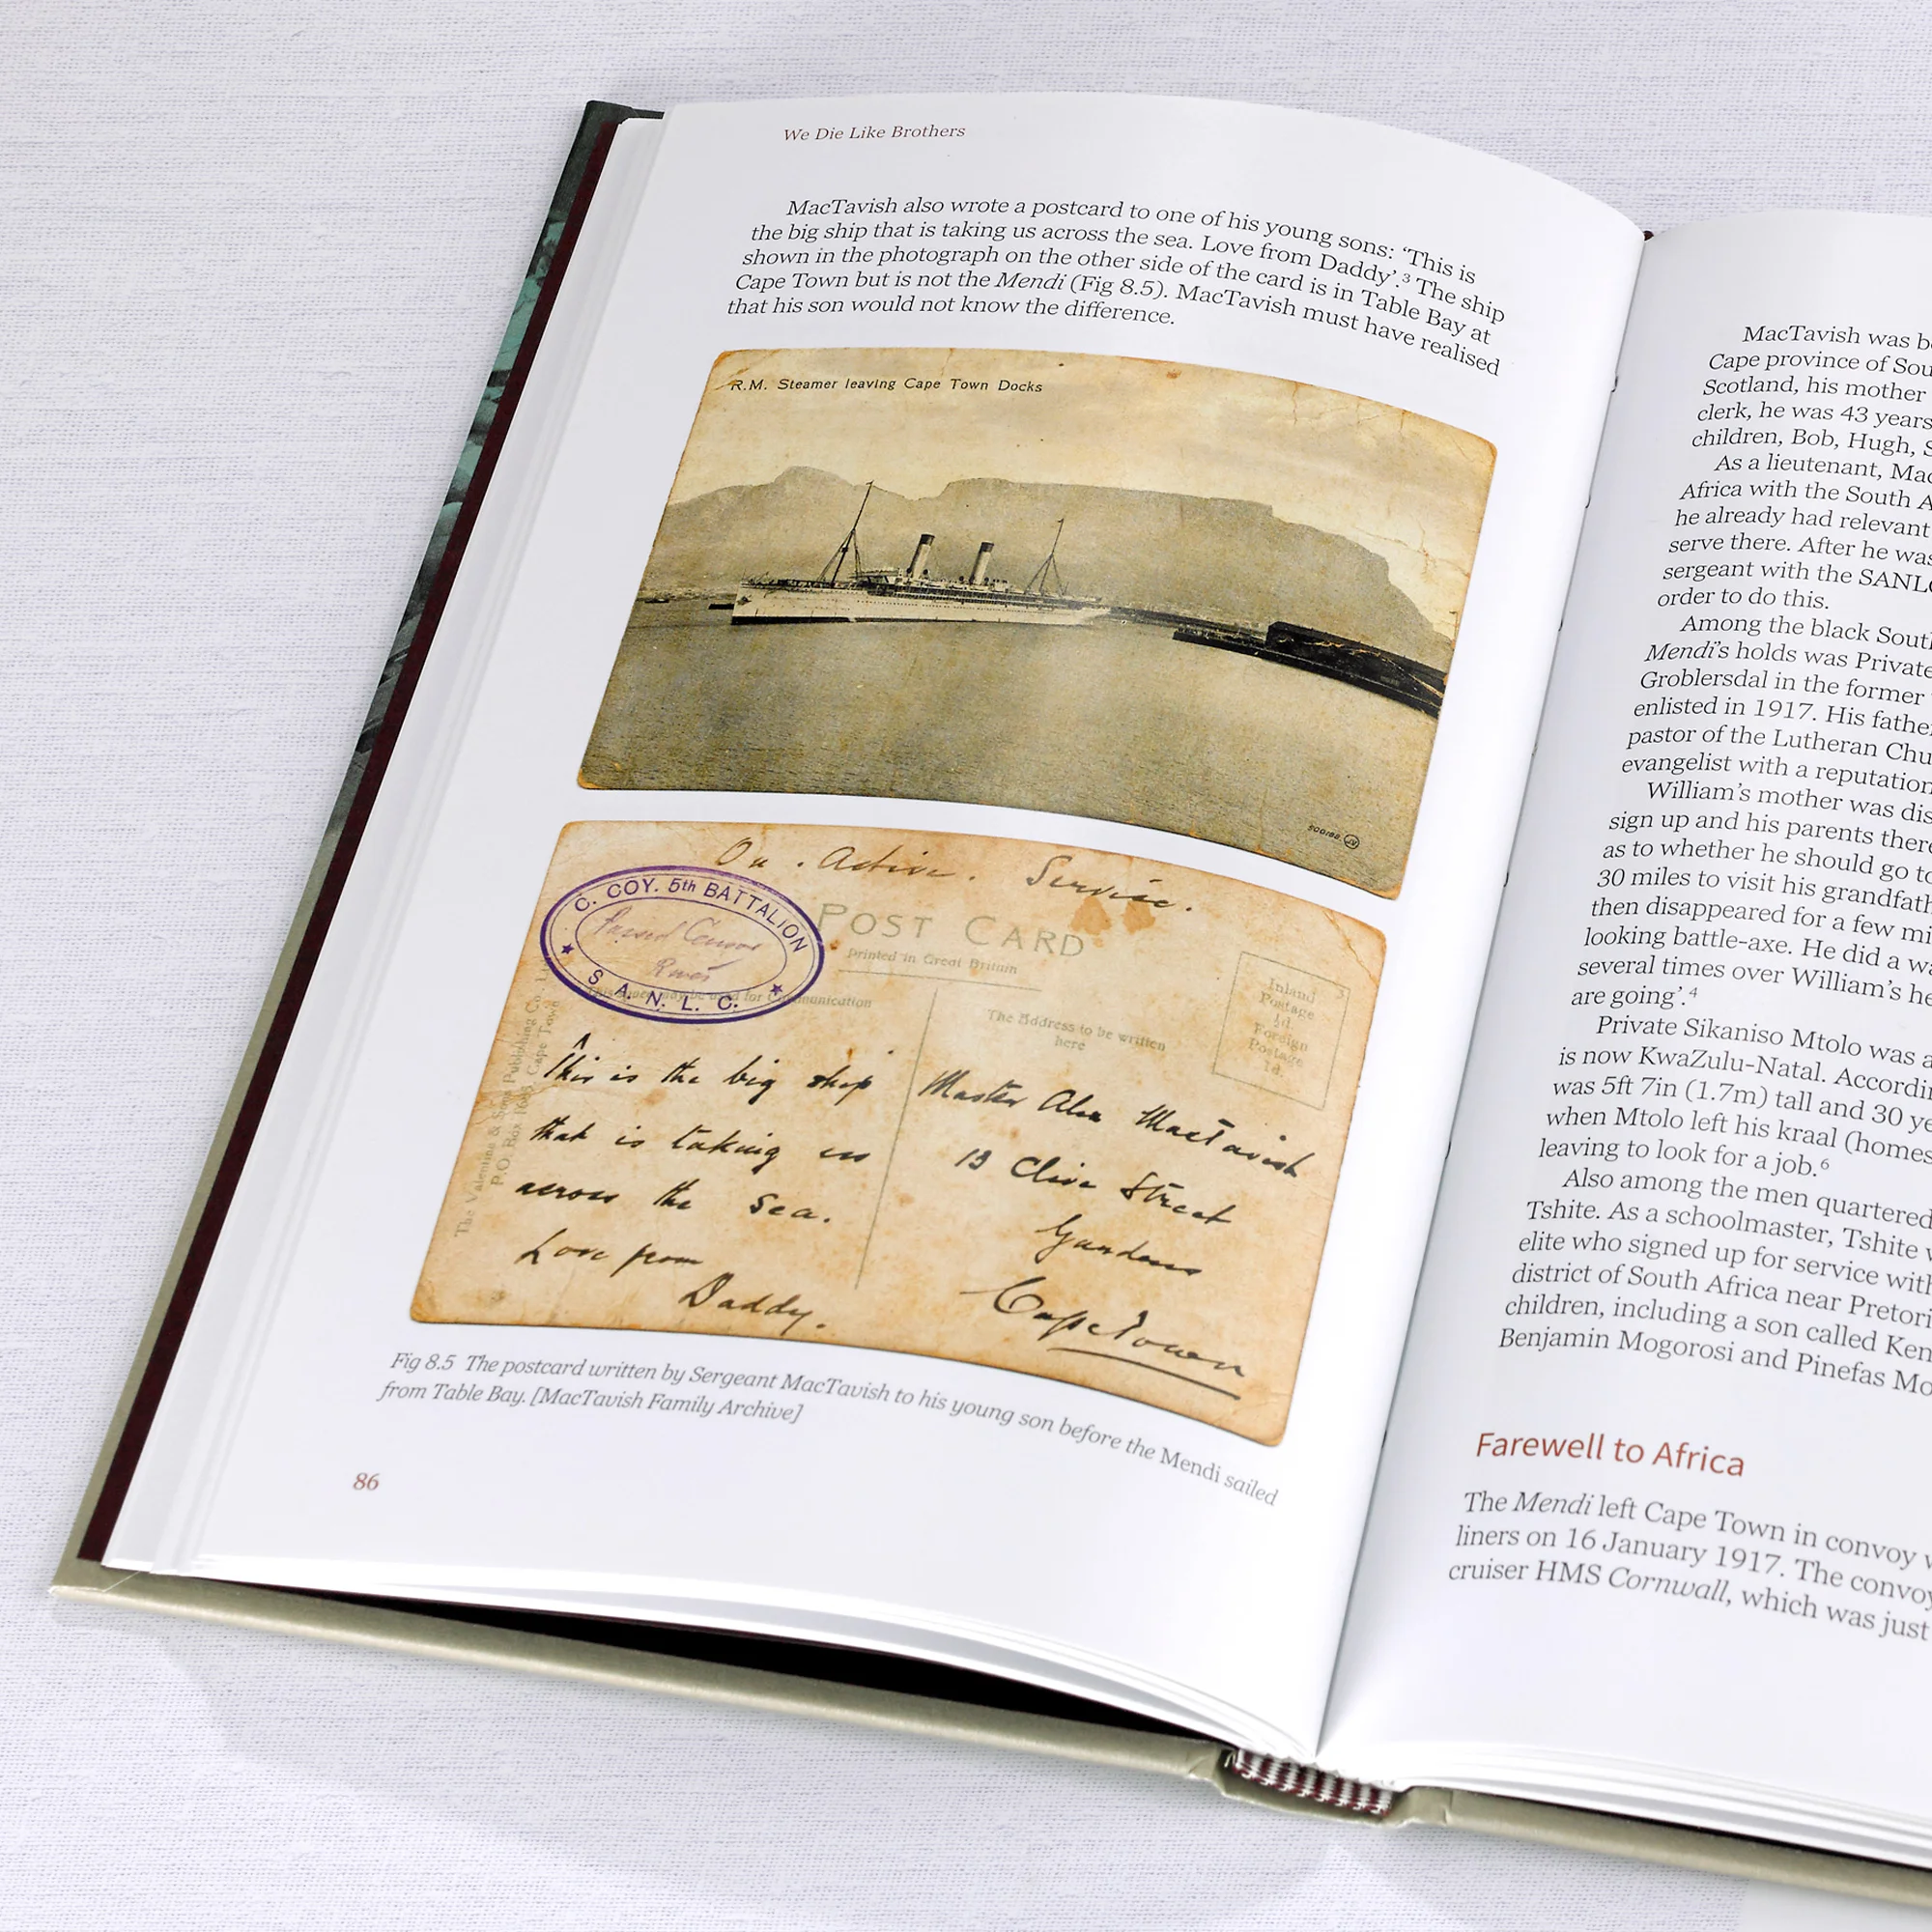 We Die Like Brothers
MacTavish also wrote a postcard to one of his young sons: ‘This is
the big ship that is taking us across the sea. Love from Daddy’.³ The ship
shown in the photograph on the other side of the card is in Table Bay at
Cape Town but is not the Mendi (Fig 8.5). MacTavish must have realised
that his son would not know the difference.
R.M. Steamer leaving Cape Town Docks
JV
On . Active . Service.
C. COY. 5th BATTALION
Passed Censor
S. A. N. L. C.
POST CARD
Printed in Great Britain
This space may be used for Communication
The Address to be written
here
Inland
Postage
½d
Foreign
Postage
1d.
The Valentine & Sons Publishing Co., Ltd
P.O. Box 1685, Cape Town
This is the big ship
that is taking us
across the sea.
Love from
Daddy.
Master Alan MacTavish
13 Clive Street
Gardens
CapeTown
Fig 8.5 The postcard written by Sergeant MacTavish to his young son before the Mendi sailed
from Table Bay. [MacTavish Family Archive]
86
MacTavish was
Cape province of
Scotland, his mother
clerk, he was 43 years
children, Bob, Hugh,
As a lieutenant,
Africa with the South
he already had relevant
serve there. After he was
sergeant with the
order to do this.
Among the black
Mendi’s holds was Private
Groblersdal in the former
enlisted in 1917. His
pastor of the Lutheran
evangelist with a reputation
William’s mother was
sign up and his parents
as to whether he should go
30 miles to visit his
then disappeared for a few
looking battle-axe. He did a
several times over William’s
are going’.⁴
Private Sikaniso Mtolo was
is now KwaZulu-Natal.
was 5ft 7in (1.7m) tall and 30
when Mtolo left his kraal
leaving to look for a job.⁶
Also among the men quartered
Tshite. As a schoolmaster, Tshite
elite who signed up for service
district of South Africa near
children, including a son called
Benjamin Mogorosi and Pinefas
Farewell to Africa
The Mendi left Cape Town in convoy
liners on 16 January 1917. The
cruiser HMS Cornwall, which was just